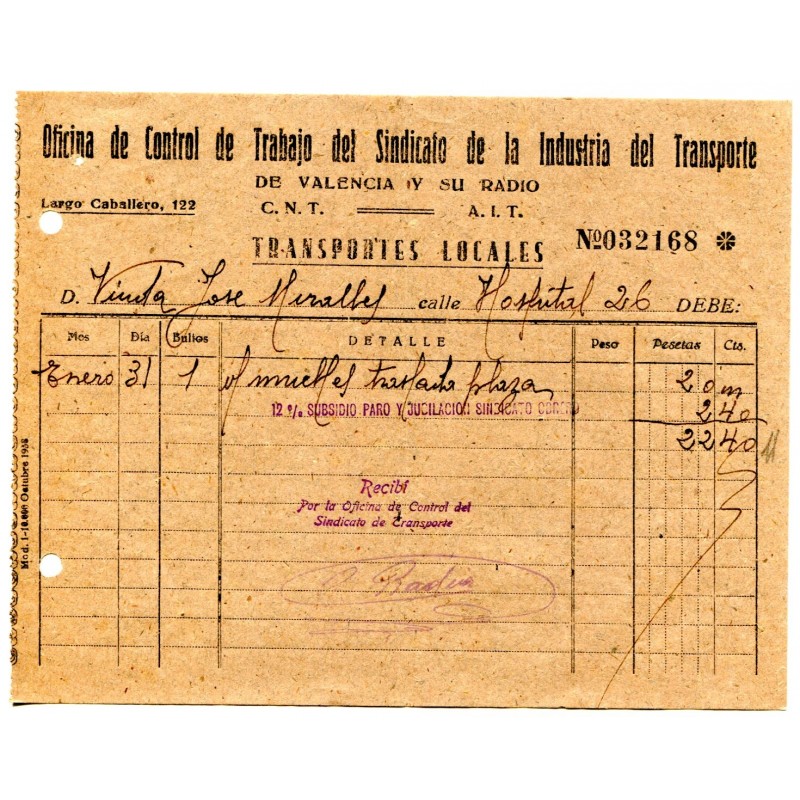 Oficina de Control de Trabajo del Sindicato de la Industria del Transporte
DE VALENCIA Y SU RADIO
Largo Caballero, 122
C. N. T. A. I. T.
TRANSPORTES LOCALES
Nº 032168
D. Viuda Jose Miralles calle Hospital 26 DEBE:
Mes Día Bultos DETALLE Peso Pesetas Cts.
Enero 31 1 muelles plaza 20
12 % SUBSIDIO PARO Y JUBILACION SINDICATO OBRERO 2 40
22 40
Recibí
Por la Oficina de Control del
Sindicato de Transporte
Mod. 1-10.000 Octubre 1936